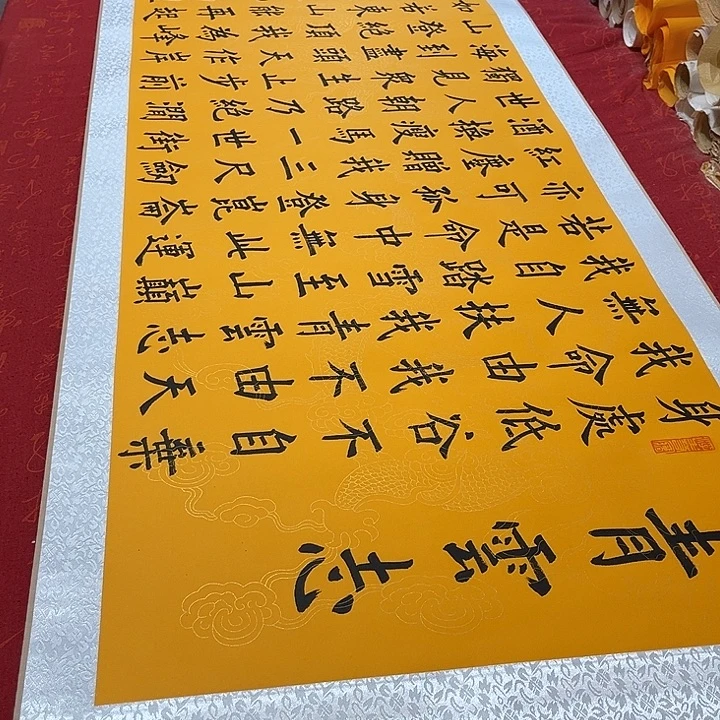 青雲志
身處低谷不自棄
我命由我不由天
無人扶我青雲志
我自踏雪至山巔
若是命中無此運
亦可孤身登崑崙
紅塵贈我三尺劍
酒操瘦馬一世街
世人朝路乃絕澗
獨見眾生止步前
海到盡頭天作岸
山登絕頂我為峰
如若東山再